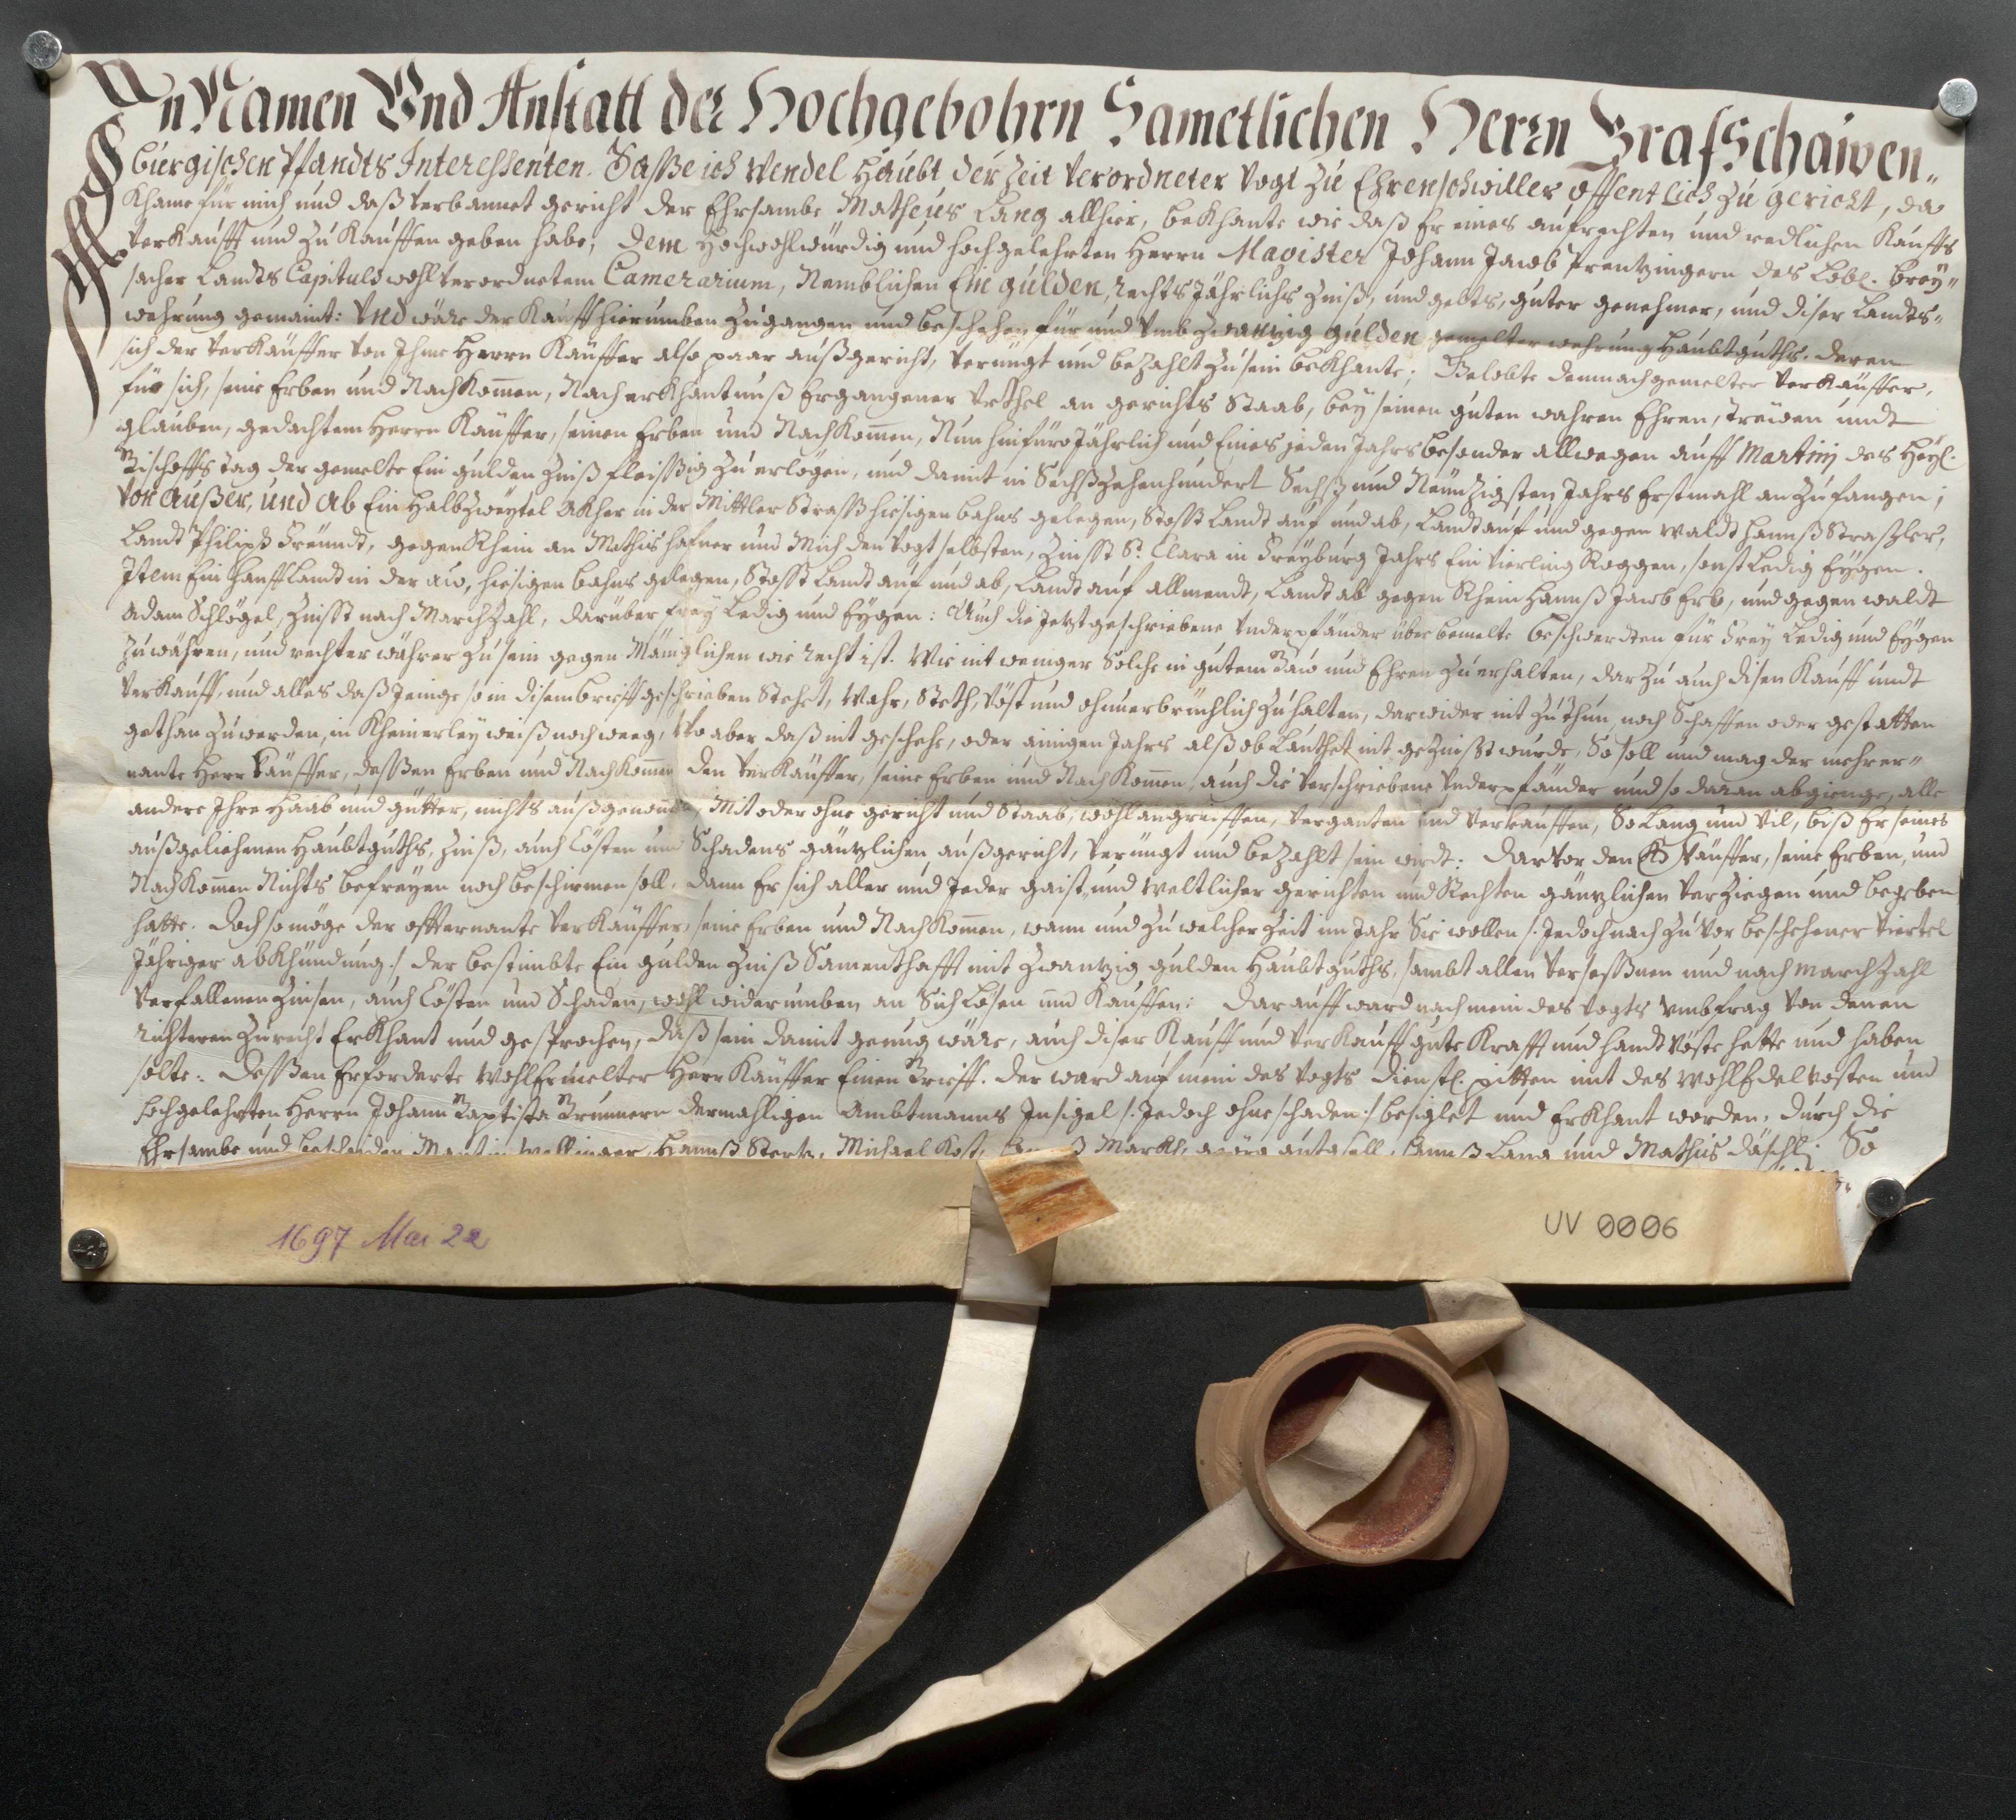 In Namen Vnd Anstatt der Hochgebohrn Sametlichen Herrn Graf Schauwen„
burgischen Pfandts Interessenten. Saße ich Wendel Haubt der Zeit Verordneter Vogt Zu Ehrenschwiller offentlich Zu gericht, da
Khame für mich und daß Verbannet gericht der Ehrsambe Matheus Lang allhier, bekhante wie daß Er eines aufrechten und redlichen Kauffs
Verkaufft und Zu Kauffen geben habe, dem Hochwohlwürdig und hochgelehrten Herrn Magister Johann Jacob Frentzingern des Lobl. Brey„
sacher Landts Capituls wohlverordnetem Camerarium, Namblichen Ein gulden, rechts Jährlichs Zinß, und gelts, guter genehmer, und diser Landts„
wehrung gemaint: Vnd wäre der Kauff hierumben Zugangen und beschehen für und Vmb Zwantzig gulden gemelter wehrung Haubtguths. deren
sich der Verkäuffer Von Ihme Herrn Käuffer also paar außgericht, Vernügt und bezahlt Zu sein bekhante; Gelobte demnach gemelter Verkäuffer,
für sich, seine Erben und Nachkomen, Nach erkhantnuß Ergangener Vrthel an gerichts Staab, bey seinen guten wahren Ehren, Treuwen undt
glauben, gedachtem Herrn Käuffer, seinen Erben und Nachkomen, Nun hinfüro Jährlich und Eines jeden Jahrs besonder allwegen auff Martinj des Heyl.
Bischoffs tag der gemelte Ein gulden Zinß fleissig Zu erlegen, und damit in Sechßzehenhundert Sechß und Neunzigsten Jahrs Erstmahl anzufangen;
Von Außer, und Ab Ein Halbzweytel Akher in der Mittler Strasß hiesigen bahns gelegen, Stosst Landt auf und ab, Landt auf und gegen Waldt Hannß Straßler,
Landt Philipß Freundt, gegen Rhein an Mathis Hafner und Mich den Vogt selbsten, Zinsst St. Clara in Freyburg Jahrs Ein Vierling Roggen, sonst Ledig Eygen.
Item Ein Hanfflandt in der aw, hiesigen bahns gelegen, Stosst Landt auf und ab, Landt auf allmendt, Landt ab gegen Rhein Hannß Jacob Erb, und gegen waldt
Adam Schlögel, Zinsst nach Marchzahl, darüber frey Ledig und Eygen: Auch die Jetzt geschriebene Vnderpfänder über bemelte beschwerdten für Frey Ledig und Eygen
Zu währen, und rechter währer Zu sein gegen Mäniglichen wie recht ist. Wie nit weniger Solche in gutem Baw und Ehren Zu erhalten, dar Zu auch disen Kauff undt
Verkauff, und alles daß Jenige so in disem brieff geschrieben Stehet, Wahr, Steth, Vöst und ohnverbrüchlich Zu halten, darwider nit Zu thun, noch Schaffen oder gestatten
gethan Zu werden, in Kheinerley weiß noch weeg, Wo aber daß nit geschehe, oder einigen Jahrs alß ob Lauthet nit gezinßt wurde, So soll und mag der mehrer„
nante Herr Käuffer, desßen Erben und Nachkomen den Verkäuffer, seine Erben und Nachkomen, auch die Verschriebene Vnderpfänder und so daran abgienge, alle
andere Ihre Haab und gütter, nichts außgenomen, Mit oder ohne gericht und Staab, wohl angreiffen, Verganten und Verkauffen, So Lang und Vil, biß Er seines
außgeliehenen Haubtguths, Zinß, auch Cösten und Schadens gäntzlichen außgericht, Vernügt und bezahlt sein wirdt: dar Vor den Verkäuffer, seine Erben, und
Nachkomen Nichts befreyen noch beschirmen soll, dann Er sich aller und Jeder gaist„ und Weltlicher gerichten und Rechten gäntzlichen Verziegen und begeben
hatte. Doch so möge der offternante Verkäuffer, seine Erben und Nachkomen, wann und Zu welcher Zeit im Jahr Sie wollen /: Jedoch nach Zu Vor beschehener Viertel
Jähriger abkhündung :/ der bestimbte Ein gulden Zinß Samenthafft mit Zwantzig gulden Haubtguths, sambt allen Verseßnen und nach Marchzahl
Verfallenen Zinsen, auch Cösten und Schaden, wohl widerumben an Sich Lösen und Kauffen: Darauff ward nach mein des Vogts Vmbfrag Von denen
richteren Zu recht Erkhant und gesprochen, daß sein damit genug wäre, auch diser Kauff und Verkauff gute Krafft und handtvöste hette und haben
solte: desßen Erforderte Wohlermelter Herr Käuffer Einen Brieff. der ward auf mein des Vogts dienstl. pitten mit des Wohledel Vesten und
hochgelehrten Herrn Johann Baptista Brunnern dermahligen Ambtmanns Insigel /: Jedoch ohne schaden :/ besiglet und Erkhant worden, durch die
Ehrsambe und bescheiden Martin Wellinger, Hannß Stertz, Michael Kost, Markt, Hannß Lang und Mathis däschlj. So
1697 Mai 22
UV 0006